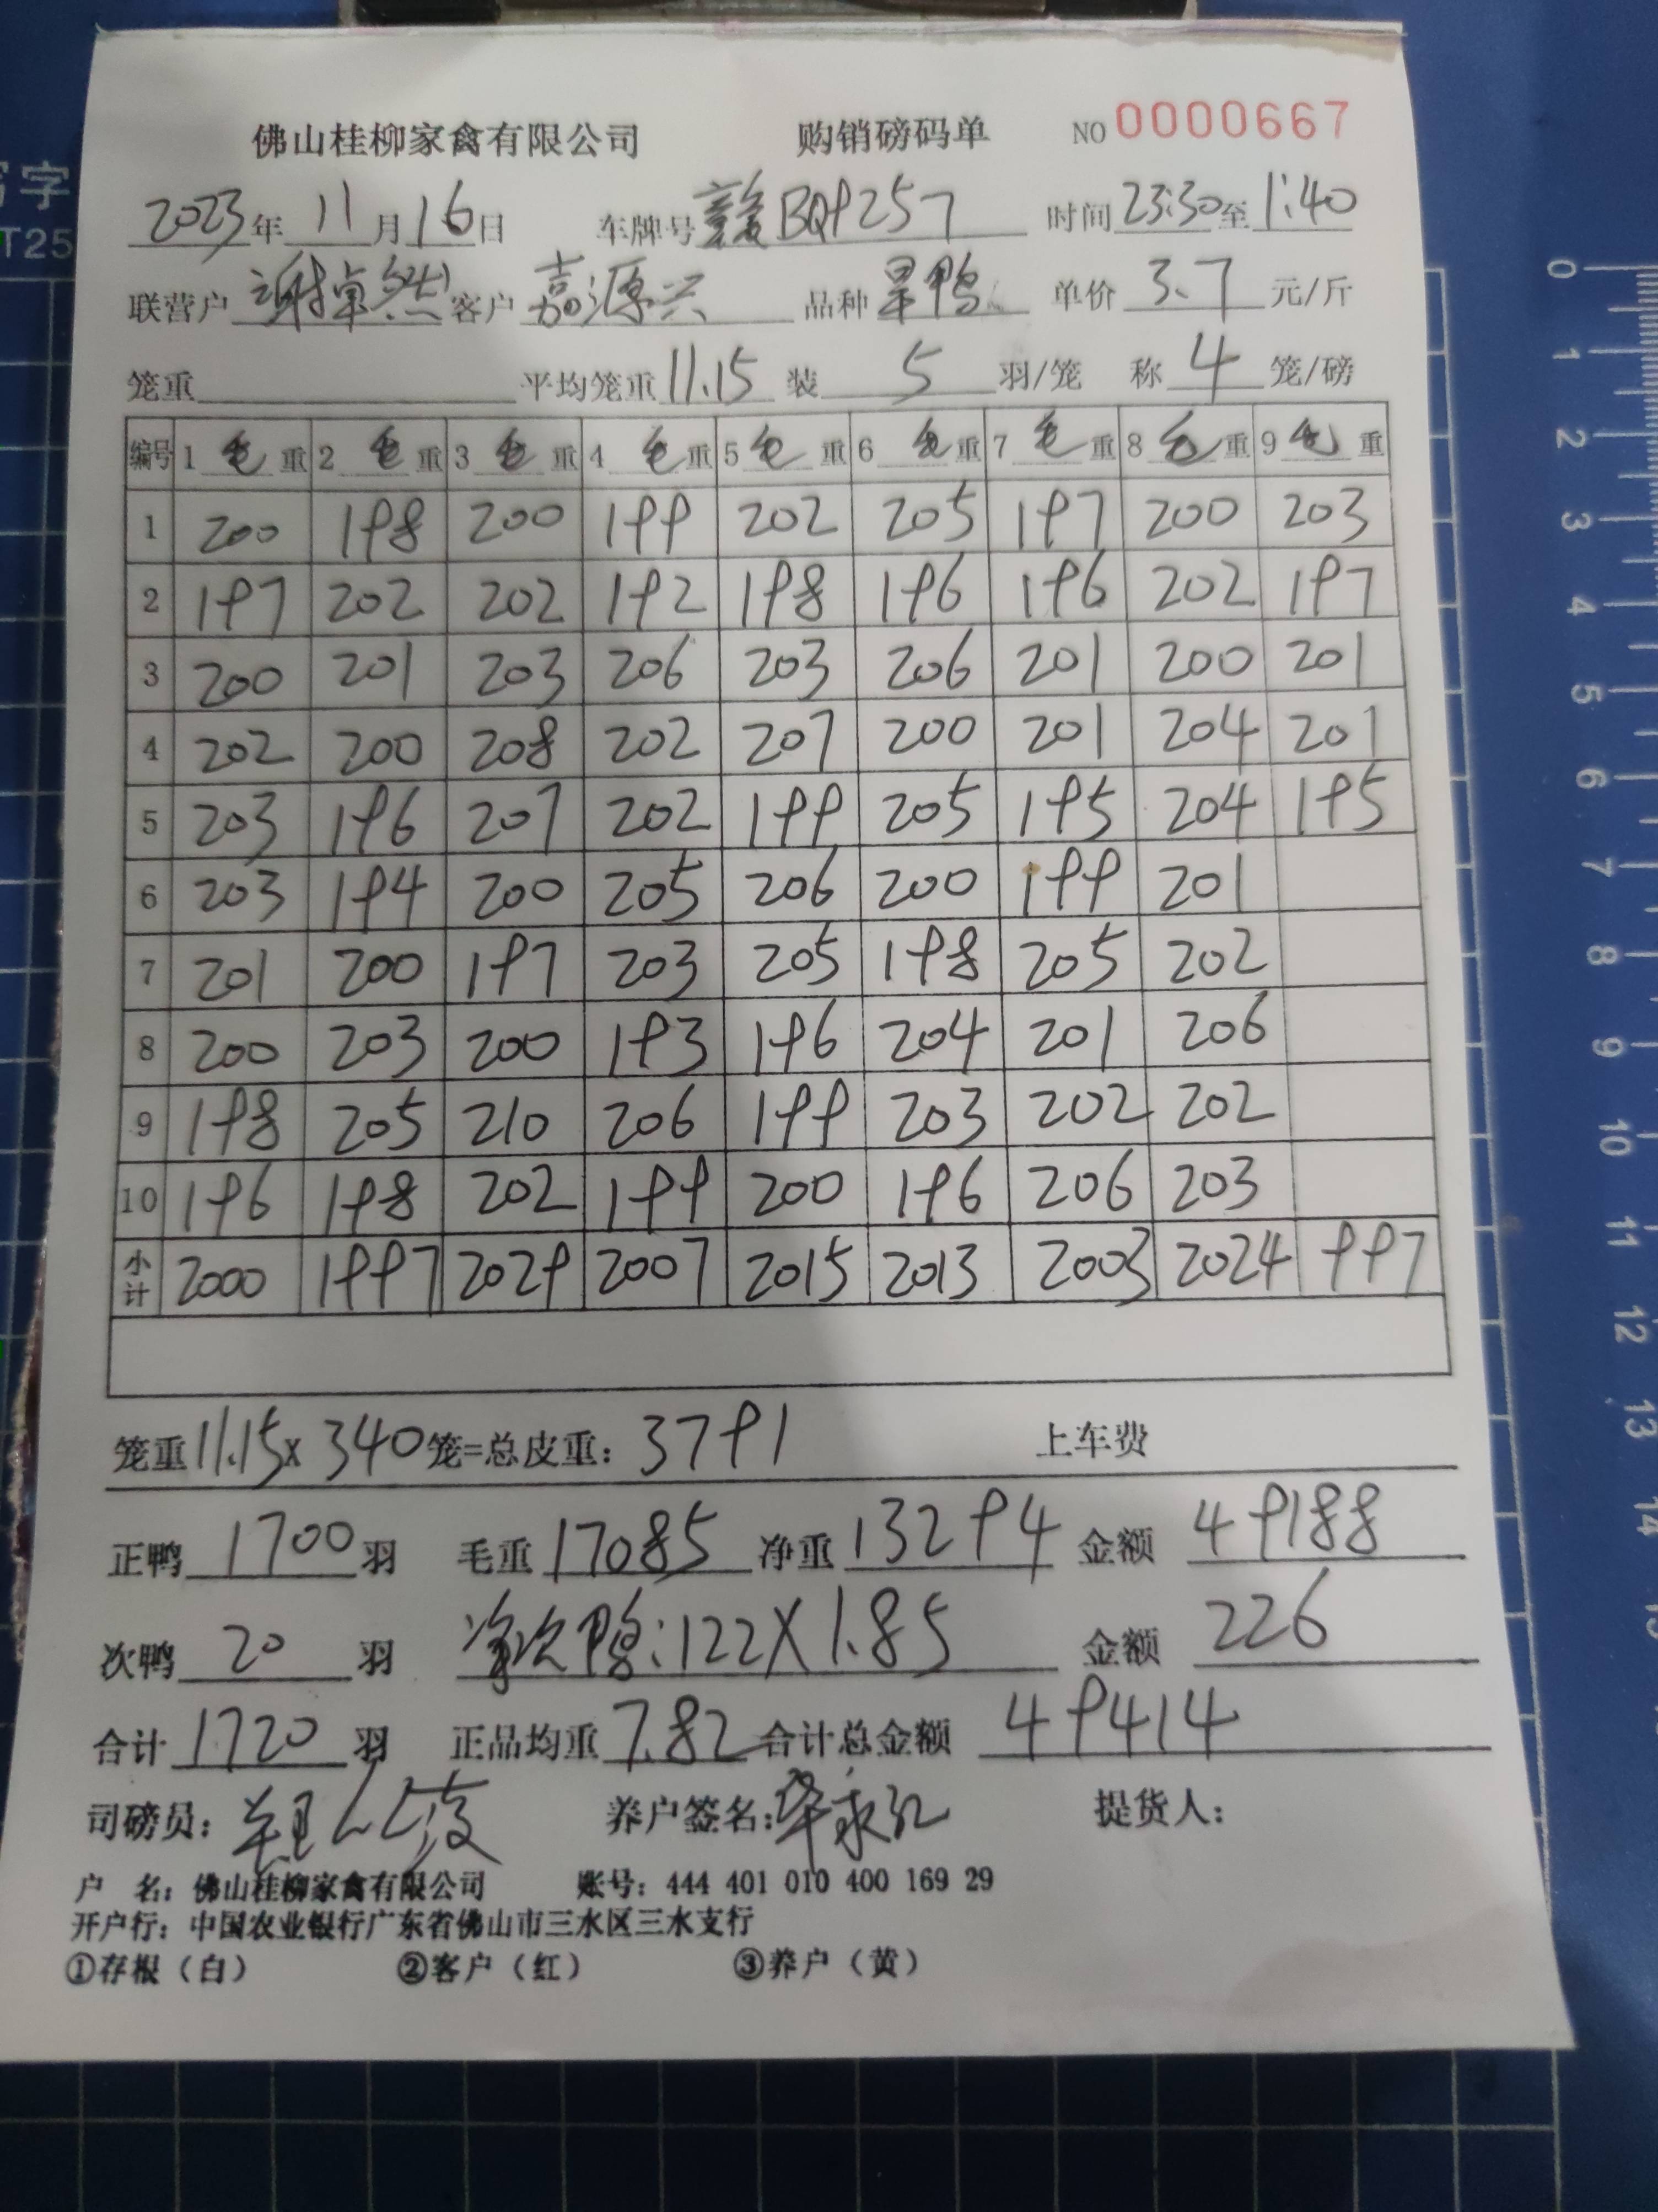 佛山桂柳家禽有限公司 购销磅码单 NO 0000667
2023年 11月16日 车牌号 赣BQ9257 时间 23:30至1:40
联营户 谢卓然 客户 嘉源兴 品种 旱鸭 单价 3.7 元/斤
笼重 平均笼重 11.15 装 5 羽/笼 称 4 笼/磅
编号 1 毛重 2 毛重 3 毛重 4 毛重 5 毛重 6 毛重 7 毛重 8 毛重 9 毛重
1 200 198 200 199 202 205 197 200 203
2 197 202 202 192 198 196 196 202 197
3 200 201 203 206 203 206 201 200 201
4 202 200 208 202 207 200 201 204 201
5 203 196 207 202 199 205 195 204 195
6 203 194 200 205 206 200 199 201
7 201 200 197 203 205 198 205 202
8 200 203 200 193 196 204 201 206
9 198 205 210 206 199 203 202 202
10 196 198 202 199 200 196 206 203
小计 2000 1997 2029 2007 2015 2013 2003 2024 997
笼重 11.15 x 340 笼=总皮重: 3791 上车费
正鸭 1700 羽 毛重 17085 净重 13294 金额 49188
次鸭 20 羽 净次鸭:122X1.85 金额 226
合计 1720 羽 正品均重 7.82 合计总金额 49414
司磅员: 养户签名: 提货人:
户 名: 佛山桂柳家禽有限公司 账号: 444 401 010 400 169 29
开户行: 中国农业银行广东省佛山市三水区三水支行
①存根（白） ②客户（红） ③养户（黄）
字
T25
0
1
2
3
4
5
6
7
8
9
10
11
12
13
14